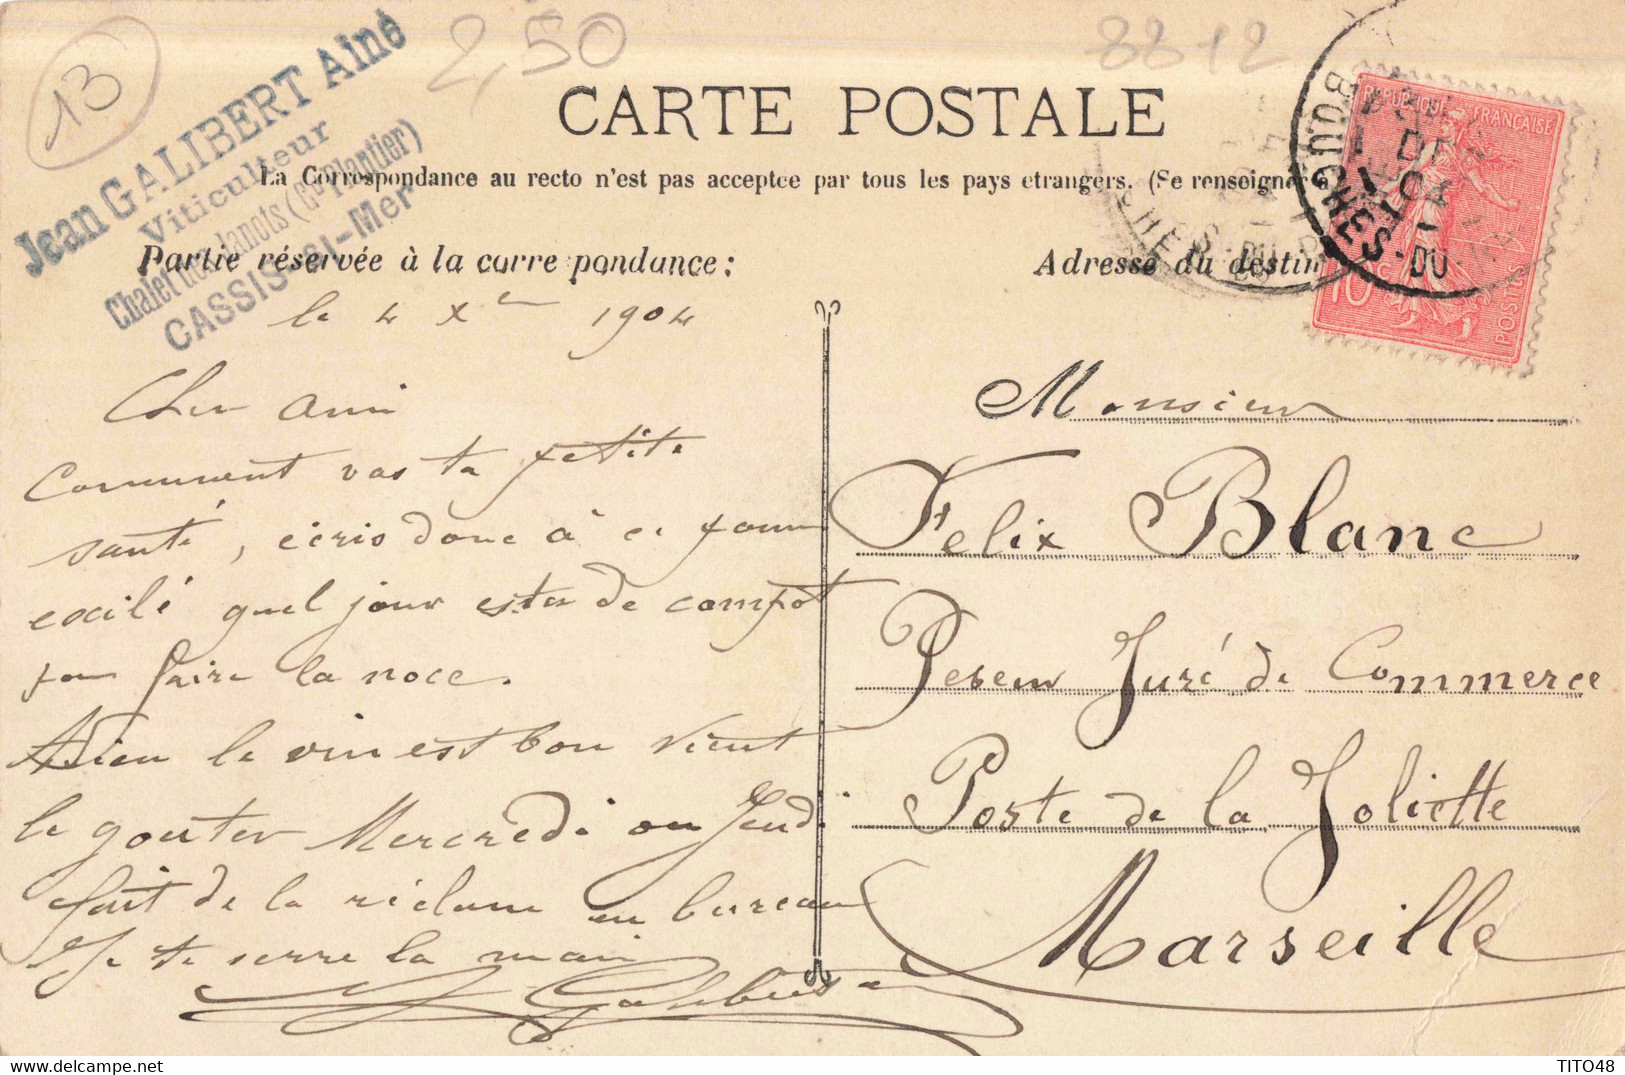 13
2,50
8812
Jean GALIBERT Ainé
Viticulteur
Chalet des Janots (Gd Plantier)
CASSIS-s/-Mer
CARTE POSTALE
La Correspondance au recto n'est pas acceptée par tous les pays étrangers. (Se renseigner
Partie réservée à la corre pondance:
Adresse du destin
RÉPUBLIQUE FRANÇAISE
10c POSTES
BOUCHES-DU-
04
le 4 Xre 1904
Cher ami
Comment vas ta petite
santé, écris donc à ce pauvre
exilé quel jour estu de campot
pour faire la noce.
Adieu le vin est bon vient
le gouter Mercredi ou Jeudi
fait de la réclame au bureau
Je te serre la main
Galibert
Monsieur
Felix Blanc
Peseur Juré de Commerce
Poste de la Joliette
Marseille
TITO48